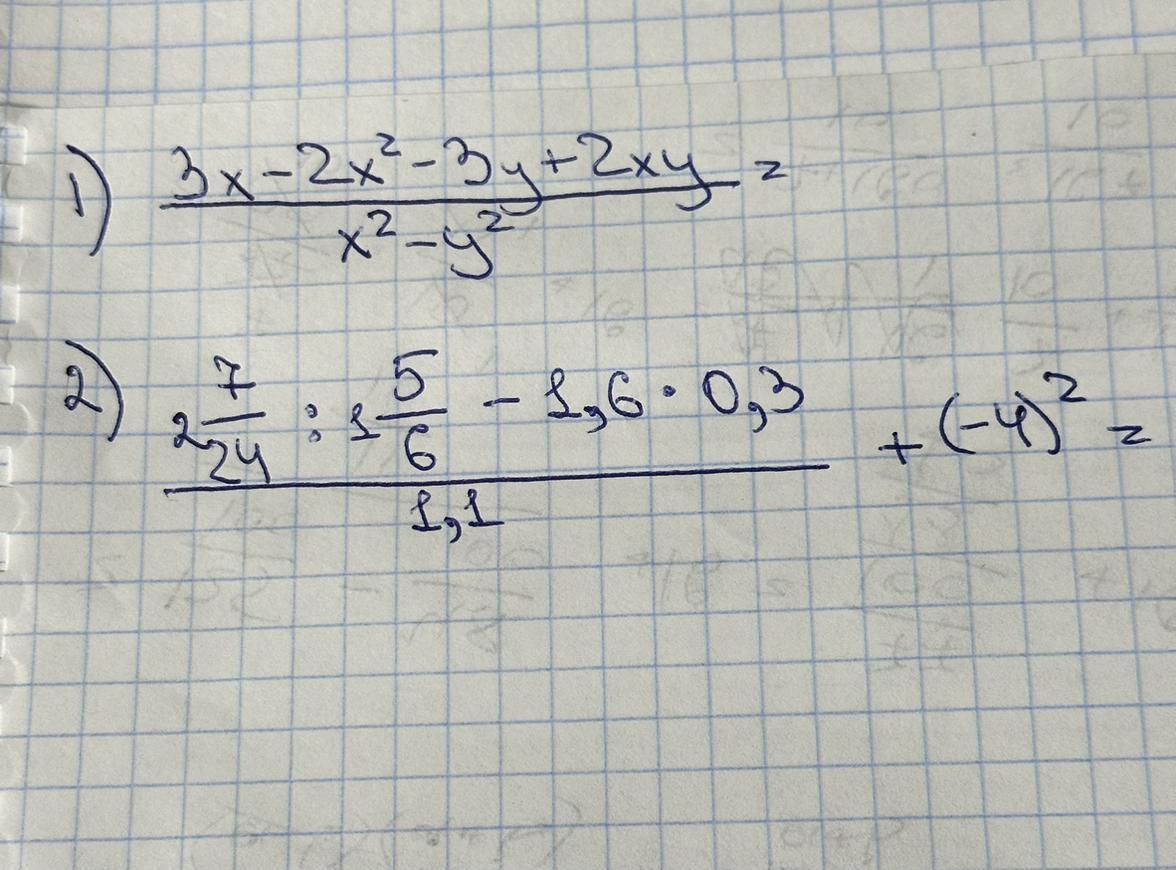 1) (3x - 2x² - 3y + 2xy) / (x² - y²) =
2) (2 7/24 : 1 5/6 - 1,6 · 0,3) / 1,1 + (-4)² =